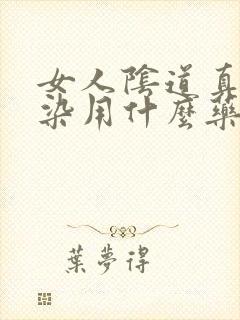 女人陰道真
染用什麼藥
葉夢得